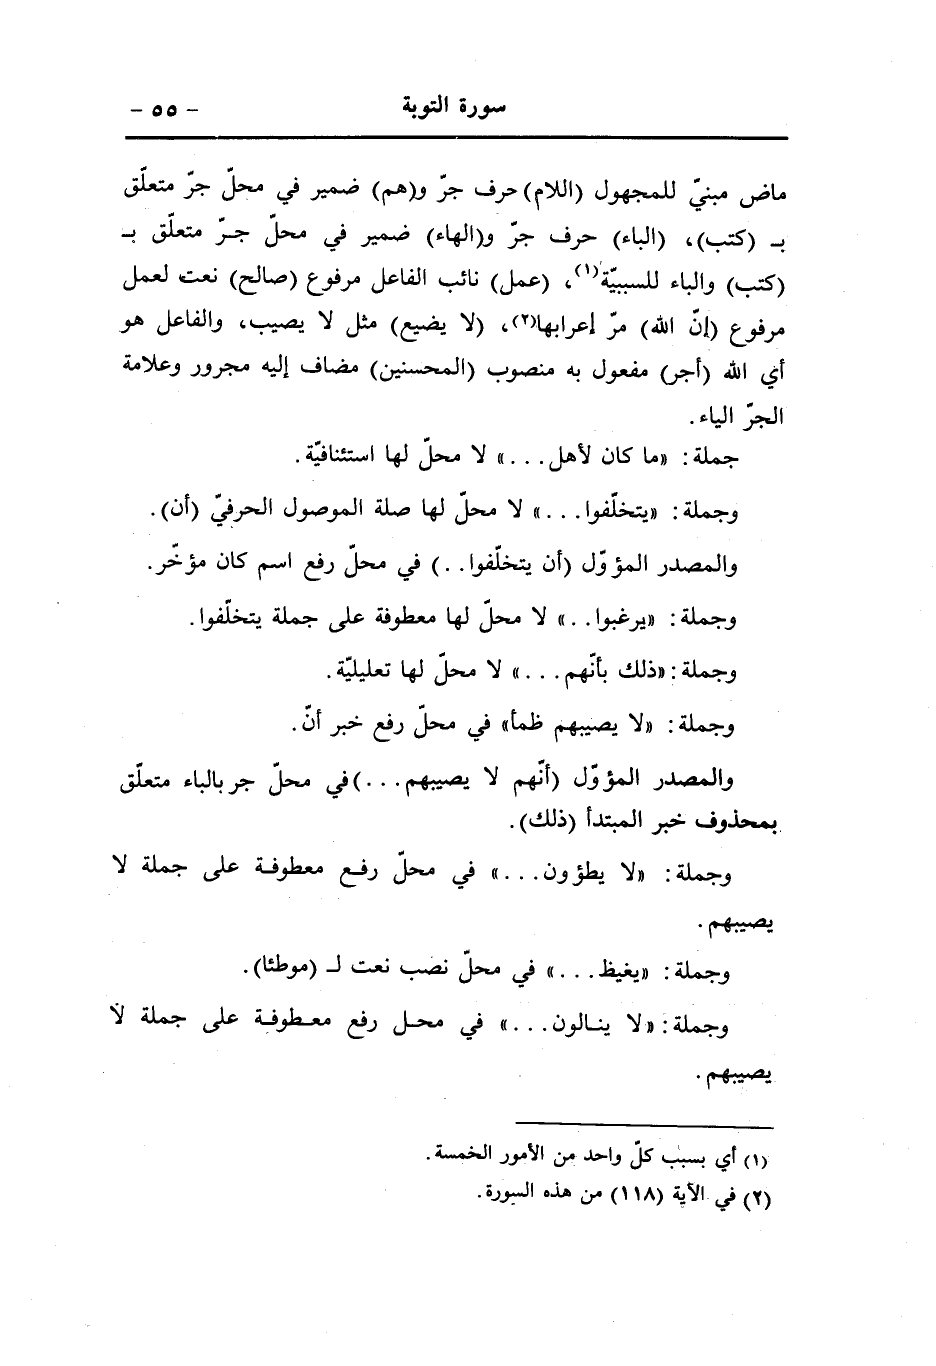 سورة التوبة - ٥٥ -
ماض مبنيّ للمجهول (اللام) حرف جرّ و(هم) ضمير في محلّ جرّ متعلّق
بـ (كتب)، (الباء) حرف جرّ و(الهاء) ضمير في محلّ جـرّ متعلّق بـ
(كتب) والباء للسببيّة(١)، (عمل) نائب الفاعل مرفوع (صالح) نعت لعمل
مرفوع (إنّ الله) مرّ إعرابها(٢)، (لا يضيع) مثل لا يصيب، والفاعل هو
أي الله (أجر) مفعول به منصوب (المحسنين) مضاف إليه مجرور وعلامة
الجرّ الياء.
جملة: «ما كان لأهل...» لا محلّ لها استئنافيّة.
وجملة: «يتخلّفوا...» لا محلّ لها صلة الموصول الحرفيّ (أن).
والمصدر المؤوّل (أن يتخلّفوا..) في محلّ رفع اسم كان مؤخّر.
وجملة: «يرغبوا..» لا محلّ لها معطوفة على جملة يتخلّفوا.
وجملة: «ذلك بأنّهم...» لا محلّ لها تعليليّة.
وجملة: «لا يصيبهم ظمأ» في محلّ رفع خبر أنّ.
والمصدر المؤوّل (أنّهم لا يصيبهم...) في محلّ جر بالباء متعلّق
بمحذوف خبر المبتدأ (ذلك).
وجملة: «لا يطؤون...» في محلّ رفـع معطوفـة على جملة لا
يصيبهم.
وجملة: «يغيظ...» في محلّ نصب نعت لـ (موطئا).
وجملة: «لا ينـالون...» في محـل رفع معـطوفـة على جملة لا
يصيبهم.
(١) أي بسبب كلّ واحد من الأمور الخمسة.
(٢) في الآية (١١٨) من هذه السورة.